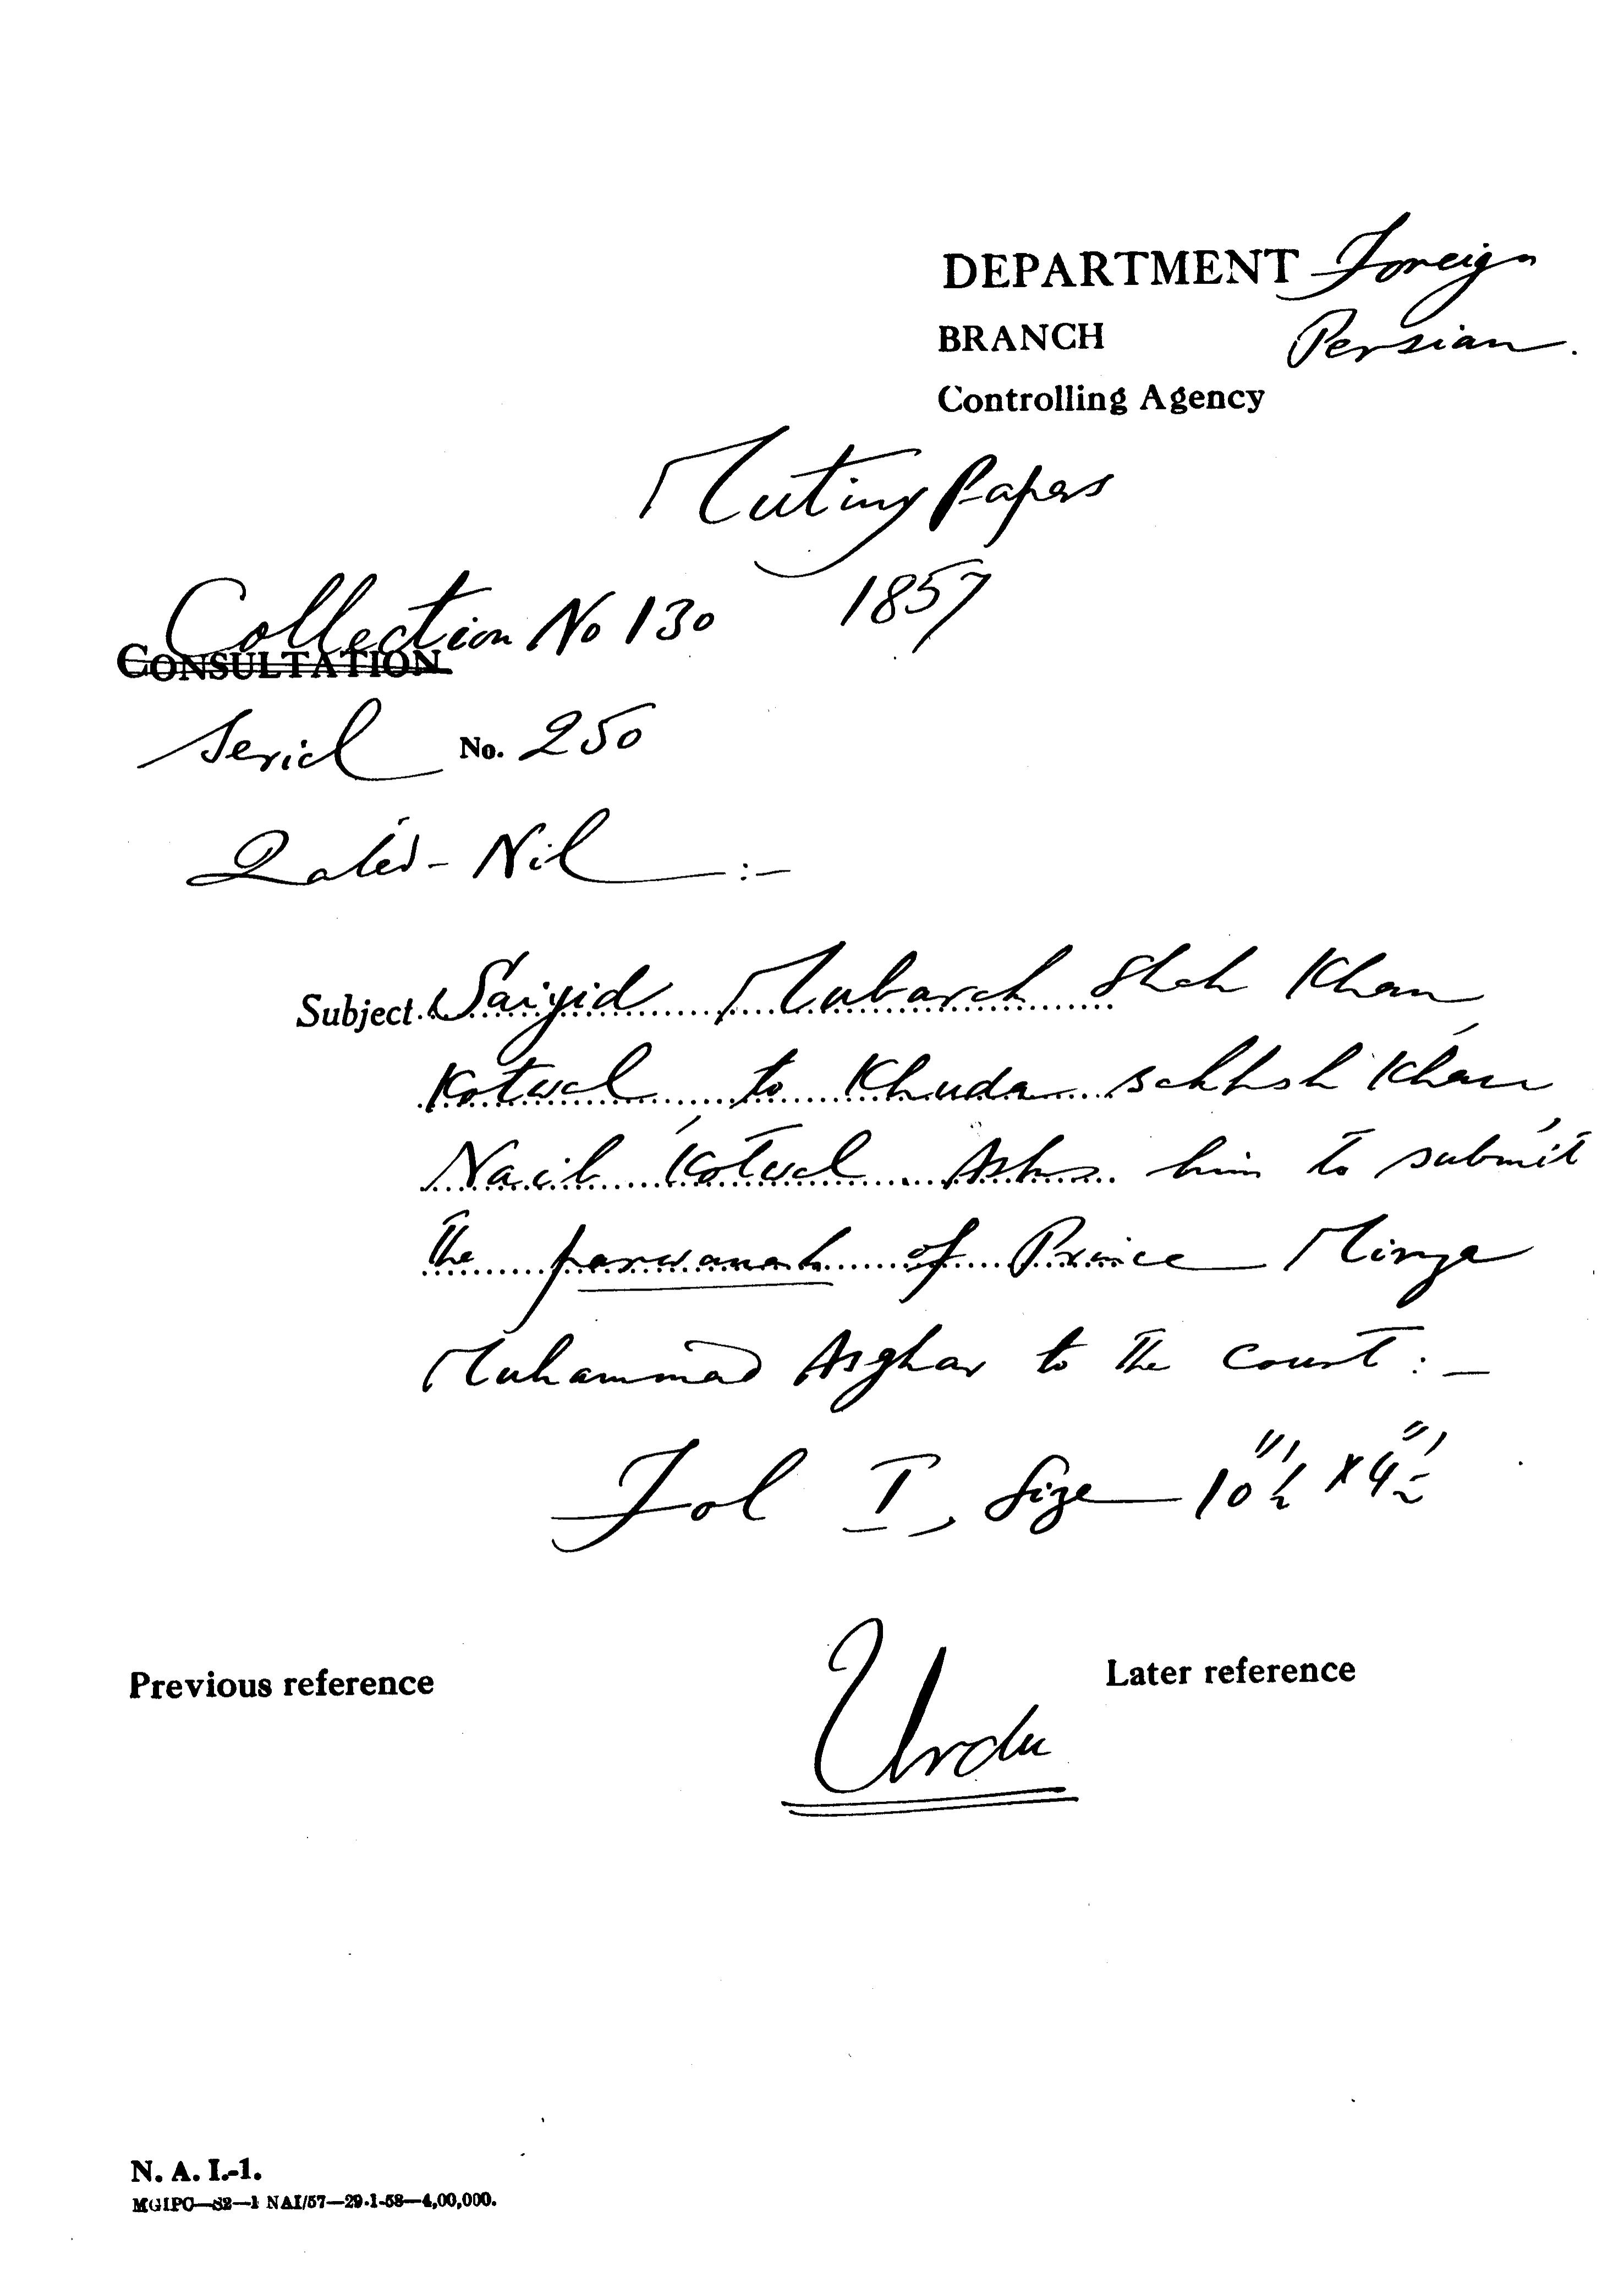 DEPARTMENT Foreign
BRANCH Persian.
Controlling Agency
Mutiny Papers
1857
Collection No 130
CONSULTATION
Serial No. 250
Dated - Nil :-
Subject Saiyid Mubarak Shah Khan
Kotwal, to Khuda Bakhsh Khan,
Naib Kotwal. Asks him to submit
the parwanah of Prince Mirza
Muhammad Asghar to the court :-
Fol I, Size 10"½ x 4"½
Previous reference
Urdu
Later reference
N. A. I.-1.
MGIPC—S2—1 NAI/57—29-1-58—4,00,000.